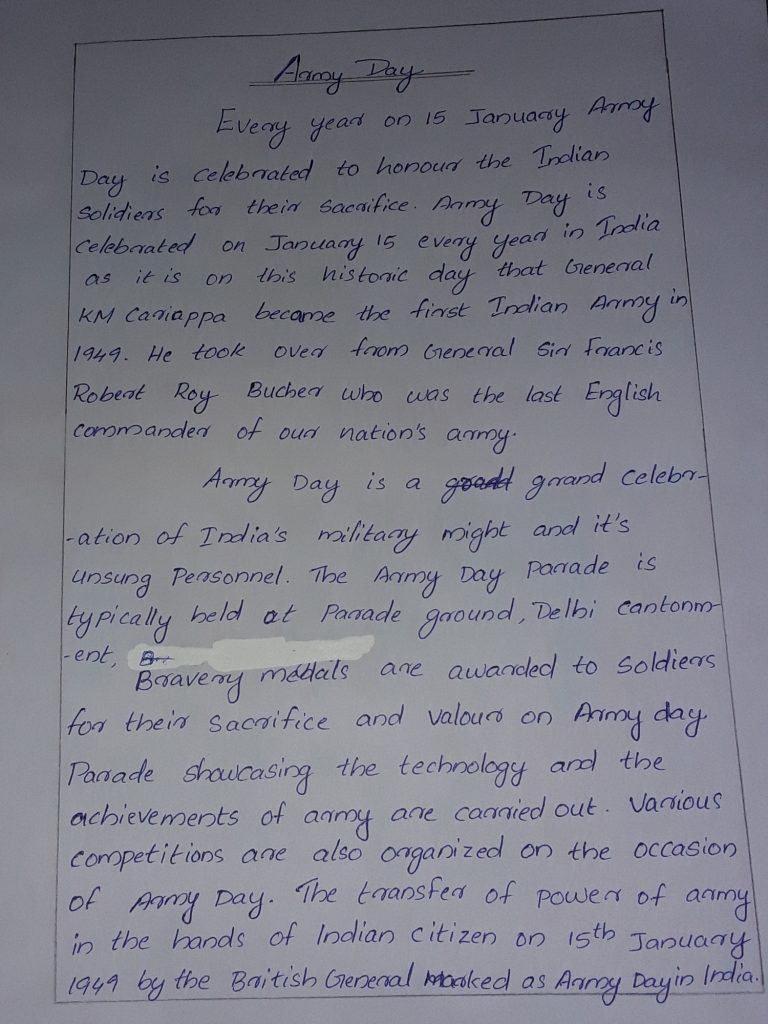 Army Day
Every year on 15 January Army
Day is celebrated to honour the Indian
Solidiers for their Sacrifice. Army Day is
celebrated on January 15 every year in India
as it is on this historic day that General
KM Cariappa became the first Indian Army in
1949. He took over from General Sir Francis
Robert Roy Bucher who was the last English
commander of our nation's army.
Army Day is a grand celebr-
-ation of India's military might and it's
unsung Personnel. The Army Day Parade is
typically held at Parade ground, Delhi cantonm-
-ent,
Bravery medals are awarded to Soldiers
for their Sacrifice and Valour on Army day
Parade showcasing the technology and the
achievements of army are carried out. Various
competitions are also organized on the occasion
of Army Day. The transfer of power of army
in the hands of Indian citizen on 15th January
1949 by the British General Marked as Army Day in India.